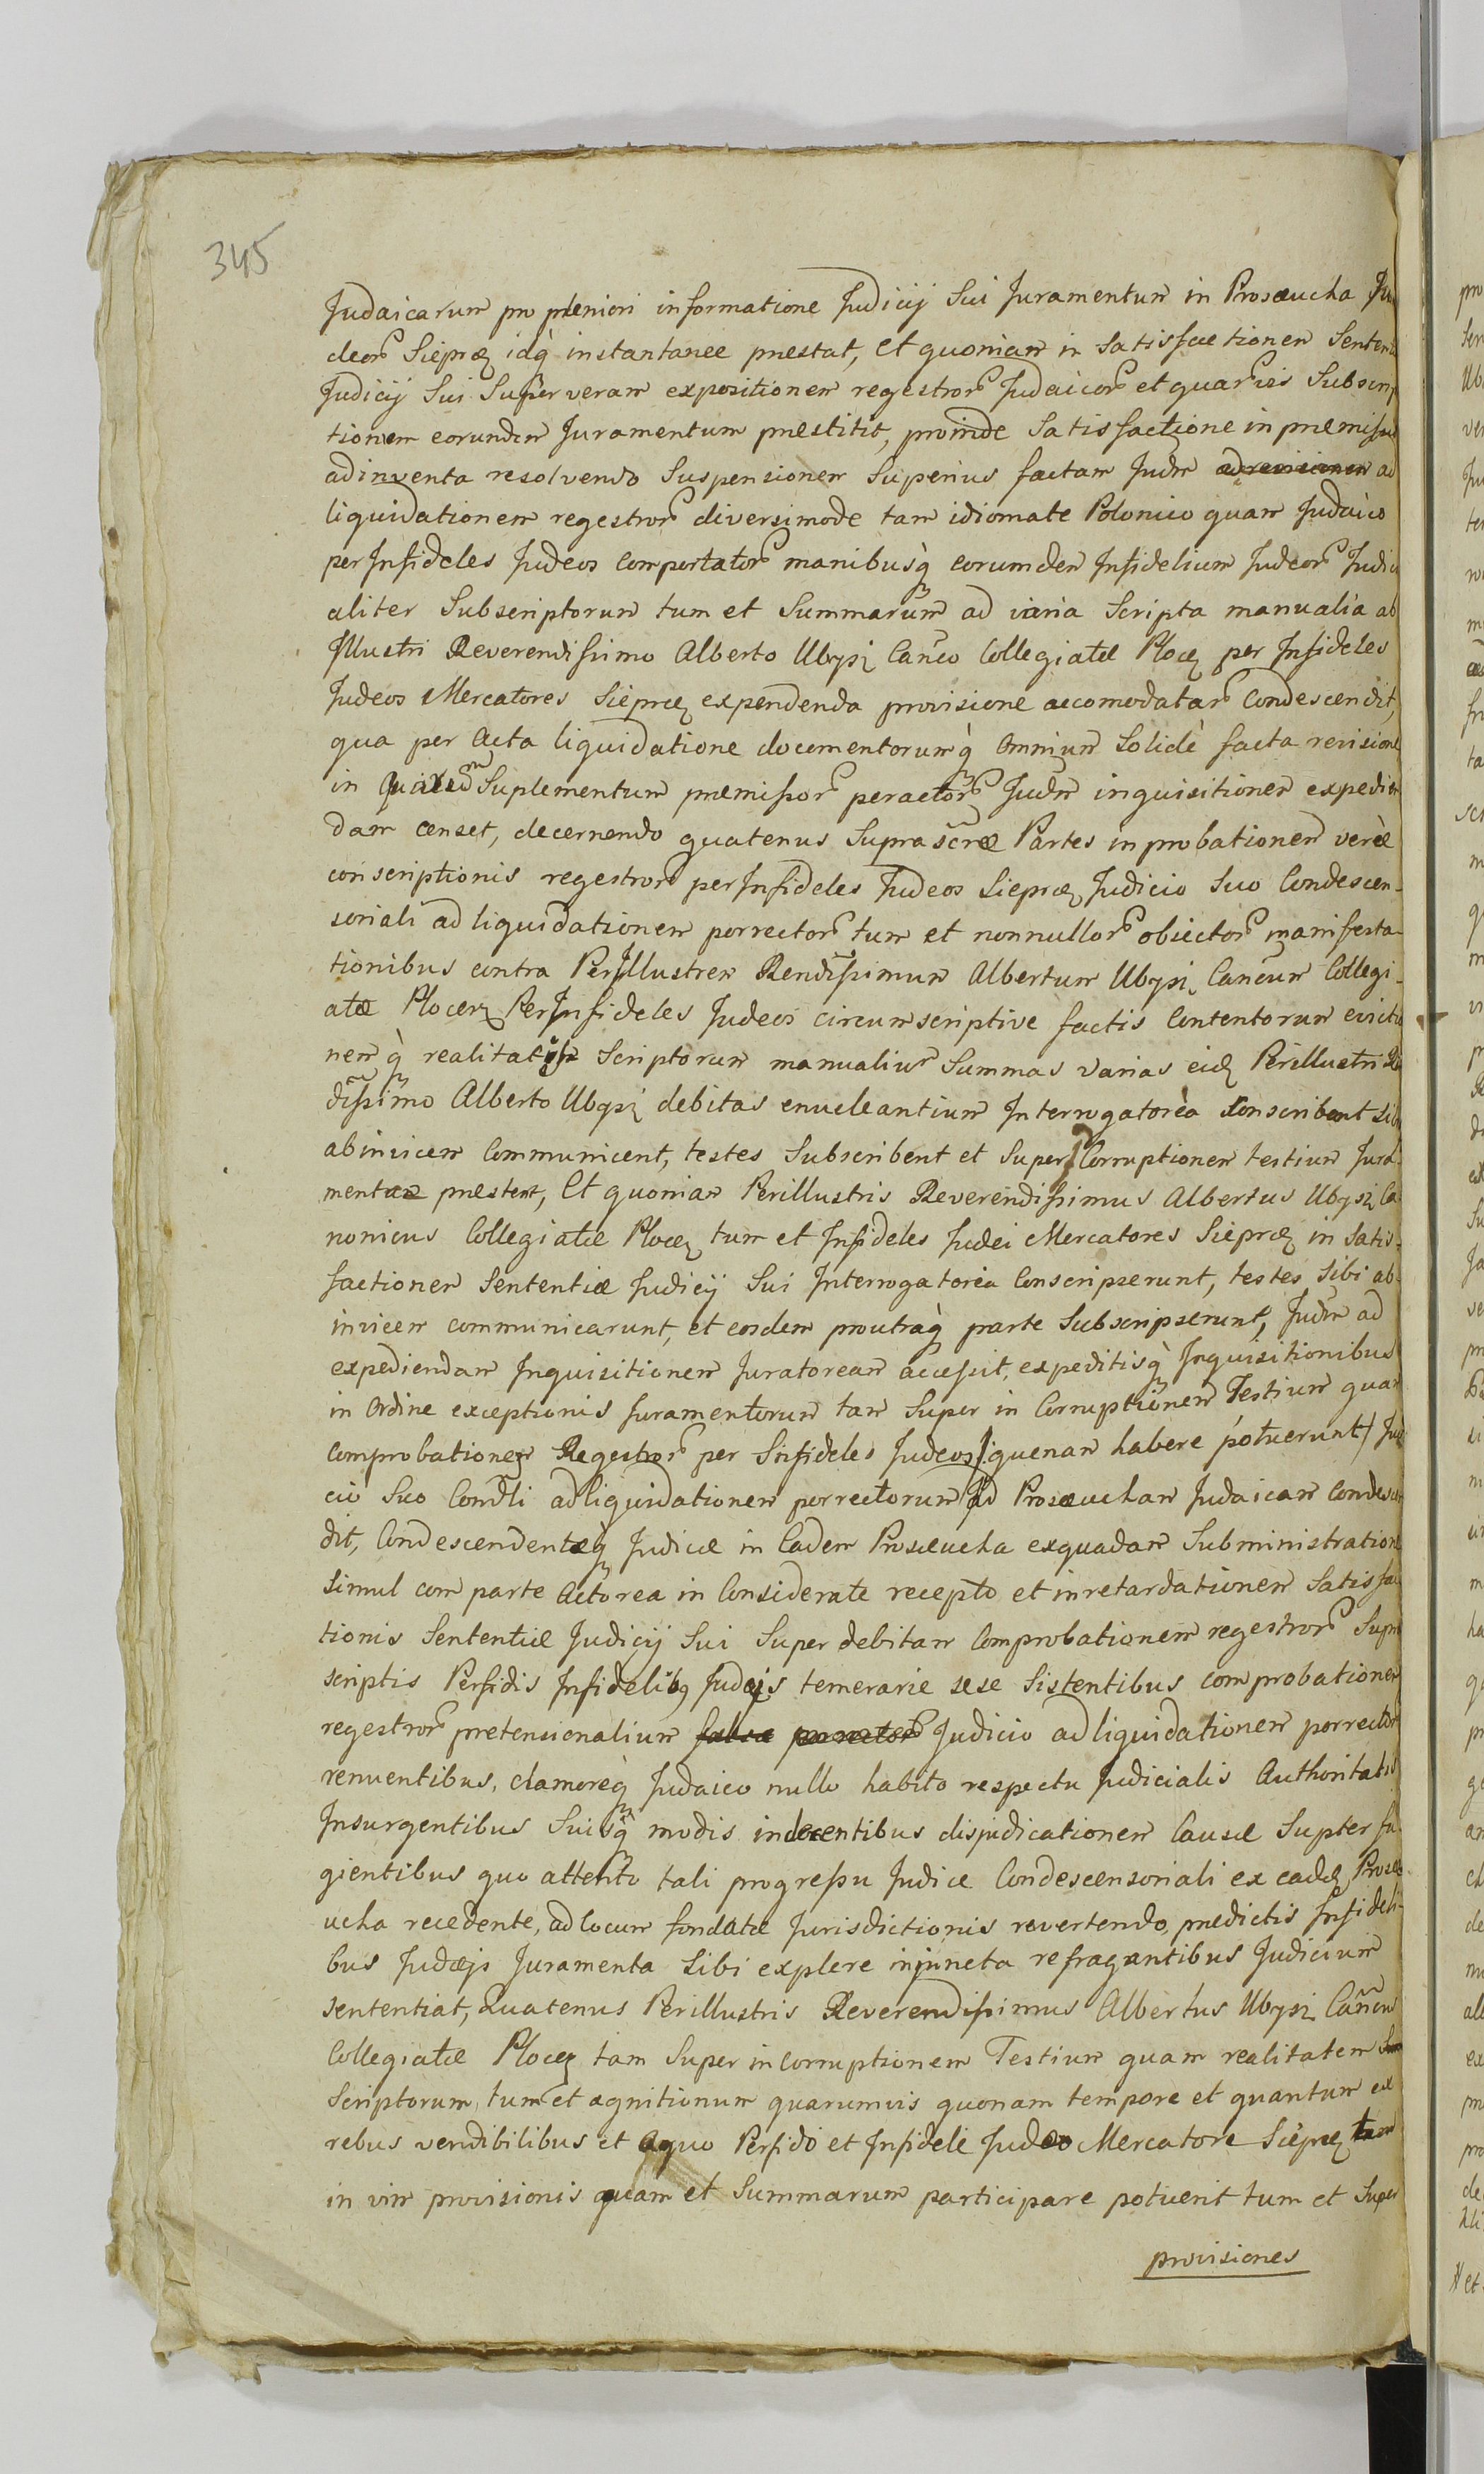 345
Judaicarum pro pleniori informatione Judicij Sui Juramentum in Proseucha Ju
deor Sieprz idq̀ instantanee prestat, et quoniam in Satisfactionem Sentent
Judicij Sui Super veram expositionem regestror Judaicor et quarvis Subscrip
tionem eorundem Juramentum prestitit, proinde Satisfactione in premissis
adinventa resolvendo Suspensionem Superius factam Judm ad revisionem ad
liquidationem regestror diversimode tam idiomate Polonico quam Judaico
per Infideles Judeos comportator manibusq̀ eorumdem Infidelium Judeor Judici
aliter Subscriptorum tum et Summarum ad varia Scripta manualia ab
Illustri Reverendissimo Alberto Ubysz Canco Collegiatæ Plocz per Infideles
Judeos Mercatores Sieprcz expendenda provisione accomodatar Condescendit,
qua per Acta liquidatione documentorumq̀ Omnium Solidè facta revisione
in Suplementum premissor peractor Judm inquisitionem expedien
dam censet, decernendo quatenus Suprascræ Partes in probationem veræ
conscriptionis regestror per Infideles Judeos Sieprcz Judicio Suo Condescen-
soriali ad liquidationem porrector tum et nonnullor obiector manifesta-
tionibus contra PerIllustrem Rendissimum Albertum Ubysz Cancum Collegi-
atæ Plocen Per Infideles Judeos circumscriptive factis Contentorum evictio
nemq̀ Scriptorum manualium Summas varias eid Perillustri Re
dissimo Alberto Ubysz debitas enucleantium Interrogatorèa Conscribant Sibi
abinvicem Communicent, testes Subscribent et Super Corruptionem testium Jura
menta prestent, Et quoniam Perillustris Reverendissimus Albertus Ubysz Ca
nonicus Collegiatæ Plocz tum et Infideles Judei Mercatores Sieprcz in Satis-
factionem Sententiæ Judicij Sui Interrogatorèa Conscripserunt, testes Sibi ab-
invicem communicarunt, et eosdem proutraq̀ parte Subscripserunt, Judm ad
expediendam Inquisitionem Juratoream accessit, expeditisq̀ Inquisitionibus
in Ordine exceptionis Juramentorum tam Super in Corruptionem Testium quam
comprobationem Regestror per Infideles Judeos /: quenam habere potuerunt / Judi
cio Suo Condli ad liquidationem porrectorum Ad Proseucham Judaicam Condescen
dit, Condescendentæq̀ Judice in Eadem Proseucha exquadam Subministratione
Simul com parte Actorea in Considerate recepto et inretardationem Satisfac
tionis Sententiæ Judicij Sui Super debitam Comprobationem regestror Supra
scriptis Perfidis Infidelib9 Judæis temerarie sese Sistentibus comprobationem
regestror pretensionalium falsæ porrector Judicio ad liquidationem porrector
renuentibus, clamoreq̀ Judaico nullo habito respectu Judicialis Authoritatis
Insurgentibus Suisq̀ modis indecentibus disjudicationem Causæ Supter fu-
gientibus quo attento tali progressu Judice Condescensoriali ex eadem Prose
ucha recedente, ad locum fondatæ Jurisdictionis revertendo, predictis Infideli-
bus Judæjs Juramenta Sibi explere injuncta refragantibus Judicium
sententiat, Quatenus Perillustris Reverendissimus Albertus Ubysz Cancus
Collegiatæ Plocz tam Super in Corruptionem Testium quam realitatem
Scriptorum, tum et agnitionum quarumvis quonam tempore et quantum ex
rebus vendibilibus et aquo Perfido et Infideli Judæo Mercatore Sieprcz tam
in vim provisionis quam et Summarum participare potuerit tum et Super
provisiones